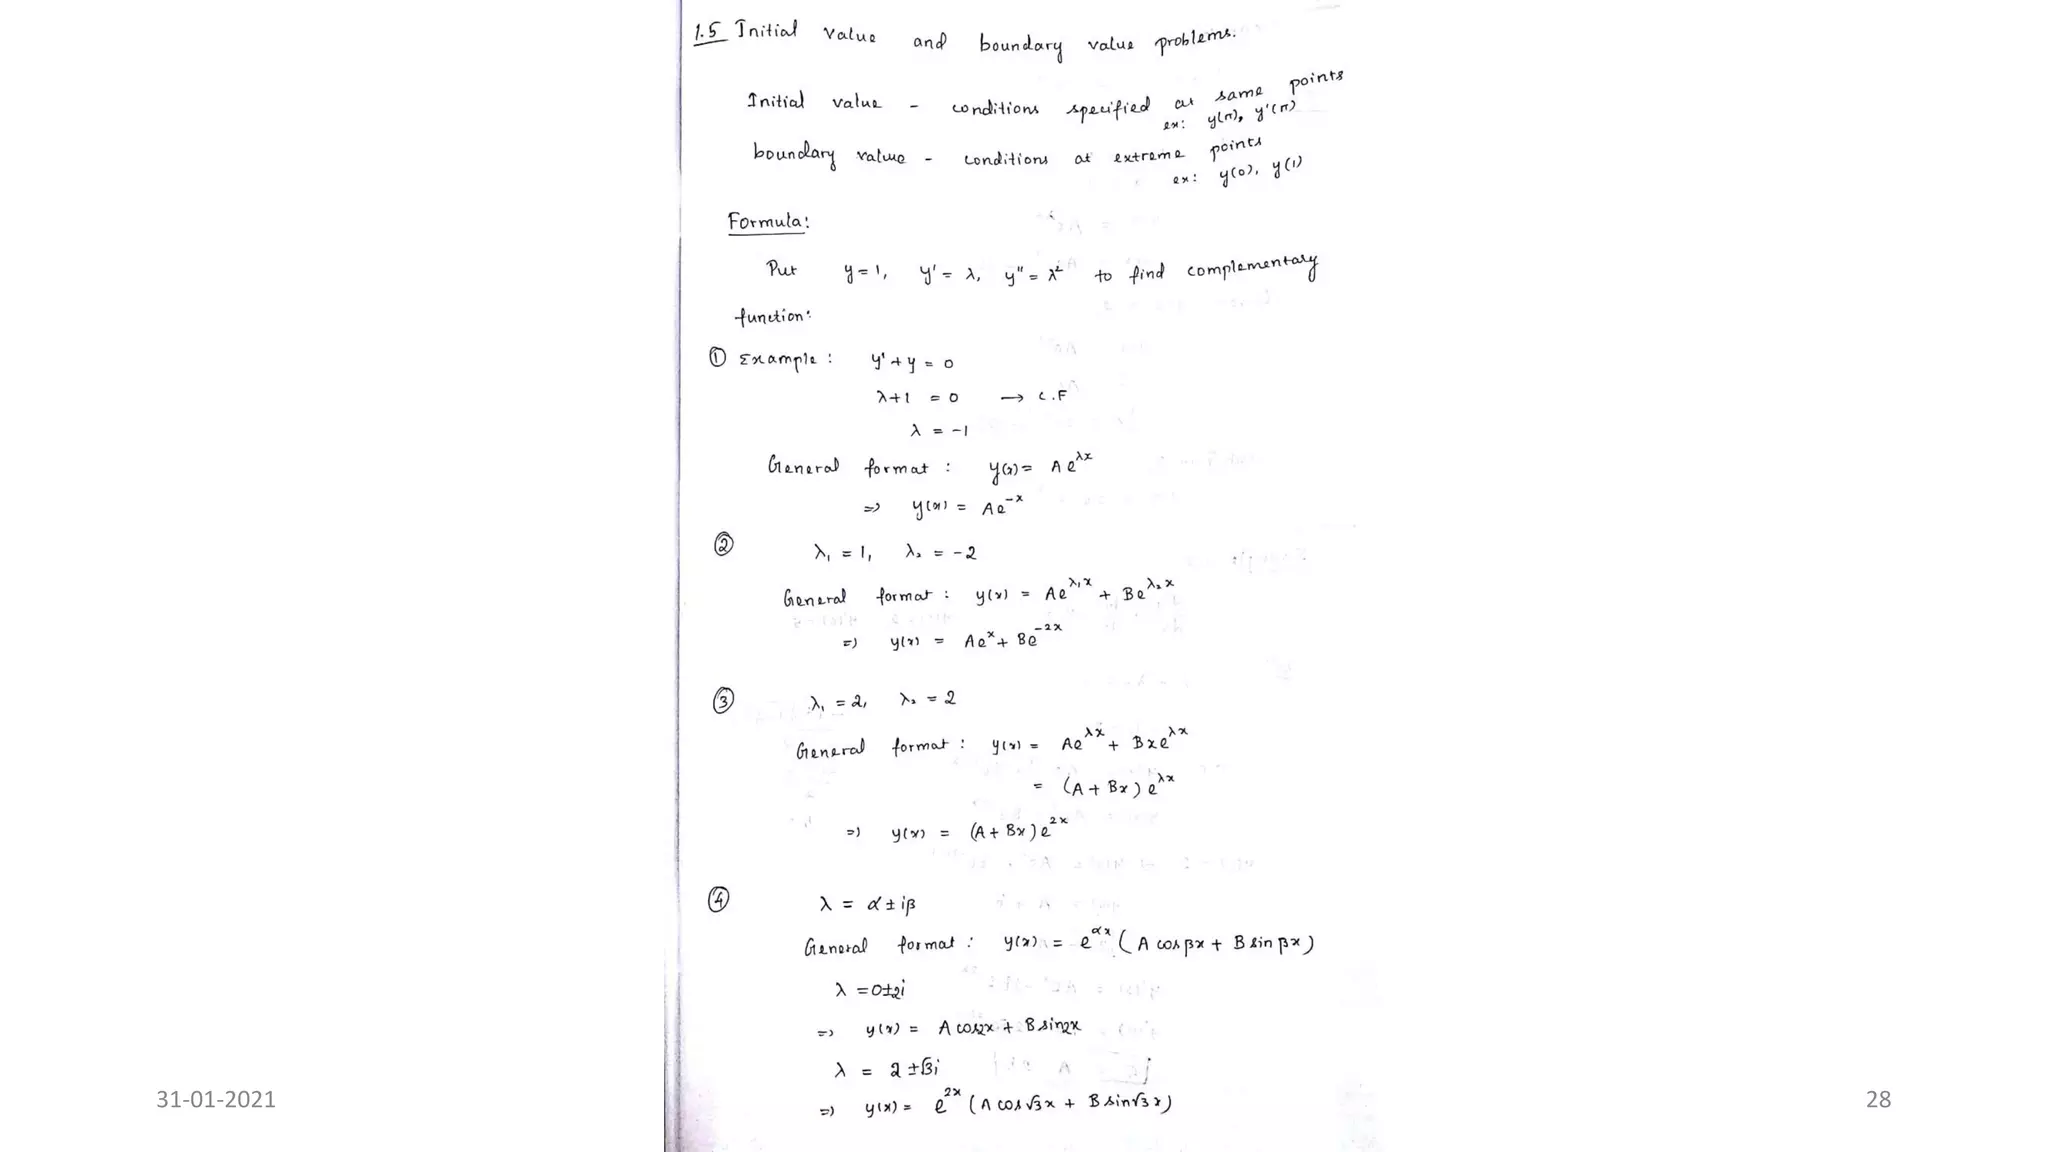 1.5 Initial value and boundary value problems.
Initial value - conditions specified at same points
ex: y(π), y'(π)
boundary value - conditions at extreme points
ex: y(0), y(1)
Formula:
Put y = 1, y' = λ, y" = λ² to find complementary
function:
① Example : y' + y = 0
λ+1 = 0 → C.F
λ = -1
General format : y(x) = A e^λx
=> y(x) = Ae^-x
② λ₁ = 1, λ₂ = -2
General format : y(x) = Ae^λ₁x + Be^λ₂x
=> y(x) = Ae^x + Be^-2x
③ λ₁ = 2, λ₂ = 2
General format : y(x) = Ae^λx + Bxe^λx
= (A + Bx) e^λx
=> y(x) = (A + Bx) e^2x
④ λ = α ± iβ
General format : y(x) = e^αx (A cos βx + B sin βx)
λ = 0±2i
=> y(x) = A cos2x + B sin2x
λ = 2 ± √3i
=> y(x) = e^2x (A cos √3x + B sin√3x)
31-01-2021
28